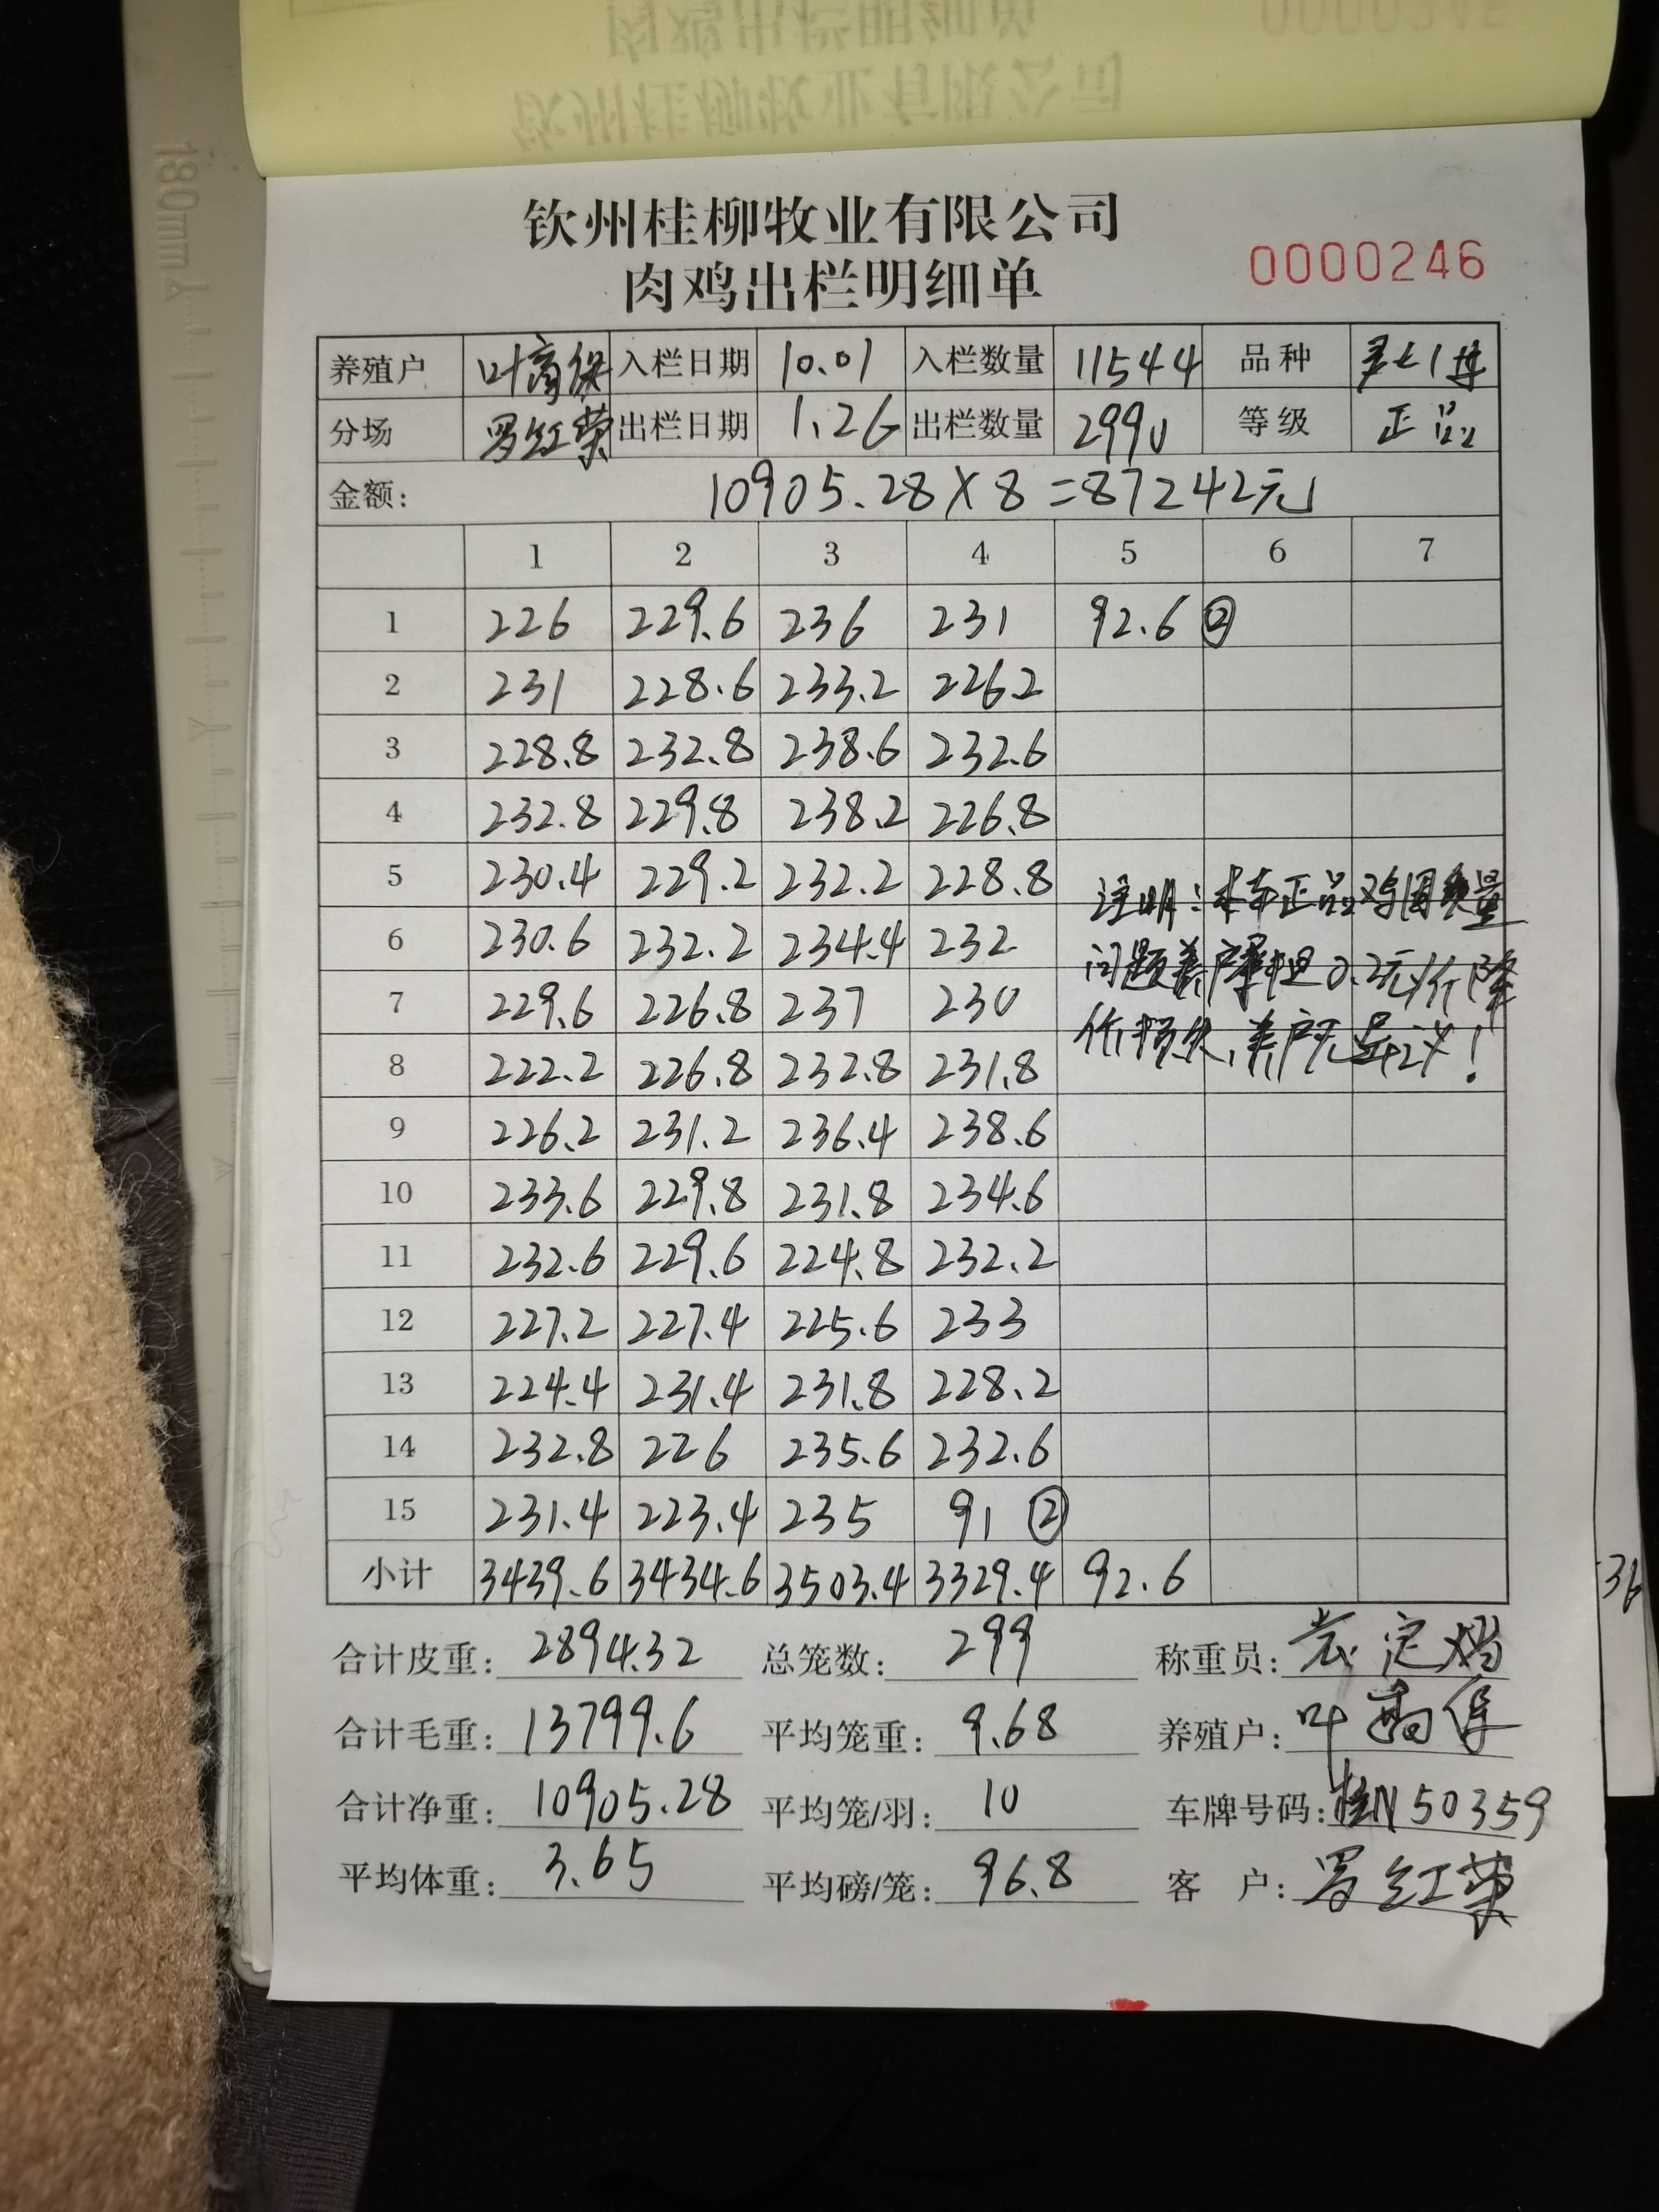 钦州桂柳牧业有限公司
肉鸡出栏明细单
0000246
养殖户 叶 入栏日期 10.01 入栏数量 11544 品种
分场 罗红荣 出栏日期 1.26 出栏数量 2990 等级 正品
金额: 10905.28×8=87242元
1 2 3 4 5 6 7
1 226 229.6 236 231 92.6 ②
2 231 228.6 233.2 226.2
3 228.8 232.8 238.6 232.6
4 232.8 229.8 238.2 226.8
5 230.4 229.2 232.2 228.8
注明:本车正品鸡因质量
6 230.6 232.2 234.4 232
问题养户承担0.2元/斤降
7 229.6 226.8 237 230
价损失,养户无异议!
8 222.2 226.8 232.8 231.8
9 226.2 231.2 236.4 238.6
10 233.6 229.8 231.8 234.6
11 232.6 229.6 224.8 232.2
12 227.2 227.4 225.6 233
13 224.4 231.4 231.8 228.2
14 232.8 226 235.6 232.6
15 231.4 223.4 235 91 ②
小计 3439.6 3434.6 3503.4 3329.4 92.6
合计皮重: 2894.32 总笼数: 299 称重员:
合计毛重: 13799.6 平均笼重: 9.68 养殖户: 叶
合计净重: 10905.28 平均笼/羽: 10 车牌号码: 桂N50359
平均体重: 3.65 平均磅/笼: 96.8 客 户: 罗红荣
180mm